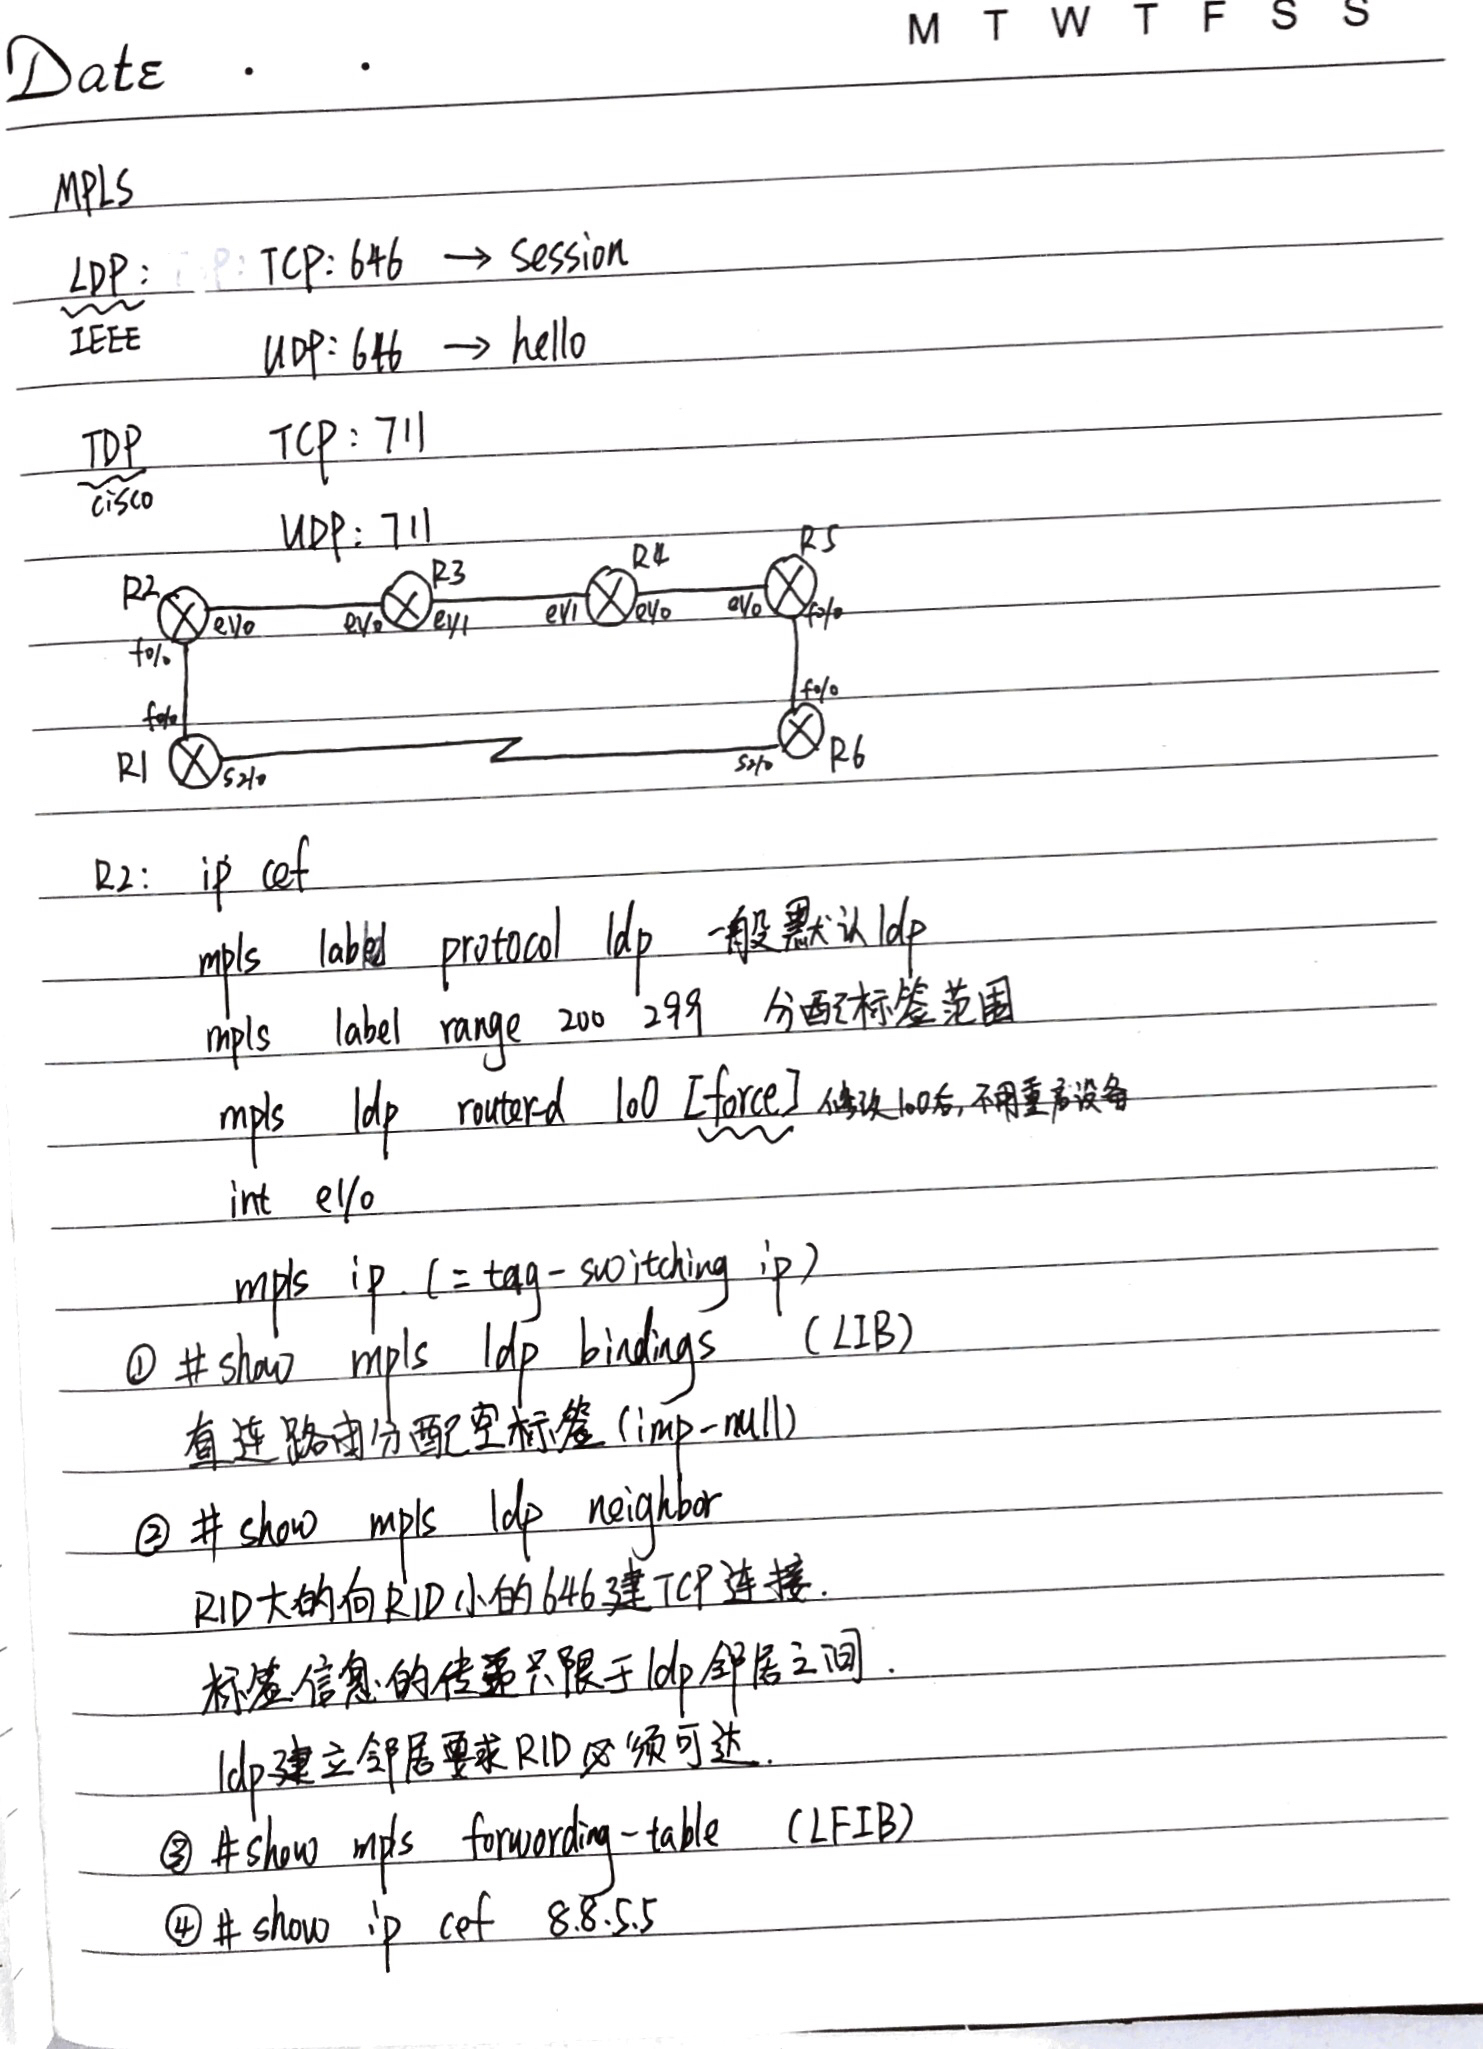 M T W T F S S
Date . .
MPLS
LDP: TCP: 646 → session
IEEE
UDP: 646 → hello
TDP TCP: 711
cisco
UDP: 711
R2 R3 R4 R5
e1/0 e1/0 e1/1 e1/1 e1/0 e1/0 f0/0
f0/0
f0/0 f0/0
R1 s2/0 s2/0 R6
R2: ip cef
mpls label protocol ldp 一般默认ldp
mpls label range 200 299 分配标签范围
mpls ldp router-d lo0 [force] 修改lo0后,不用重启设备
int e1/0
mpls ip. (= tag-switching ip)
① #show mpls ldp bindings (LIB)
直连路由分配空标签(imp-null)
② # show mpls ldp neighbor
RID大的向RID小的646建TCP连接.
标签信息的传递只限于ldp邻居之间.
ldp建立邻居要求RID必须可达.
③ #show mpls forwording-table (LFIB)
④ # show ip cef 8.8.5.5